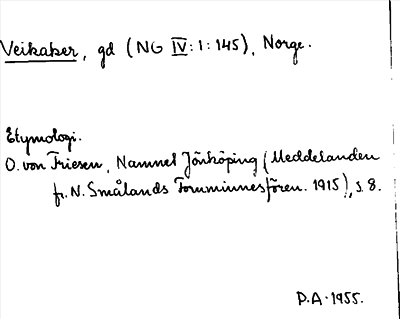 Veikaker, gd (NG IV:1:145), Norge.
Etymologi.
O. von Friesen, Namnet Jönköping (Meddelanden
fr. N. Smålands Fornminnesfören. 1915), s. 8.
P.A. 1955.